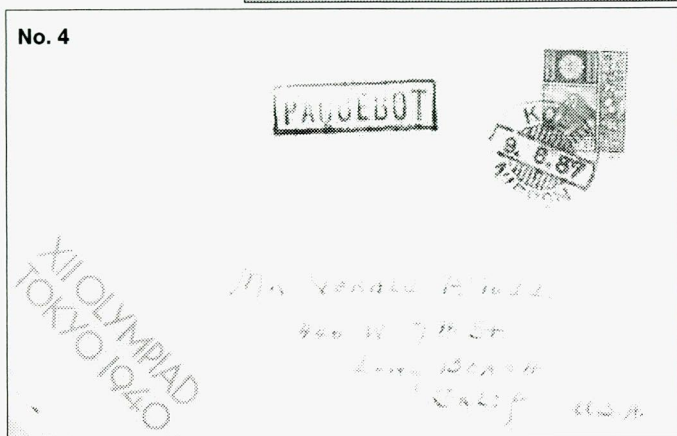 No. 4
PAQUEBOT
KOBE
9. 8. 87
NIPPON
XII OLYMPIAD
TOKYO 1940
Mr Donald
440 W 7th St
Long Beach
Calif U.S.A.